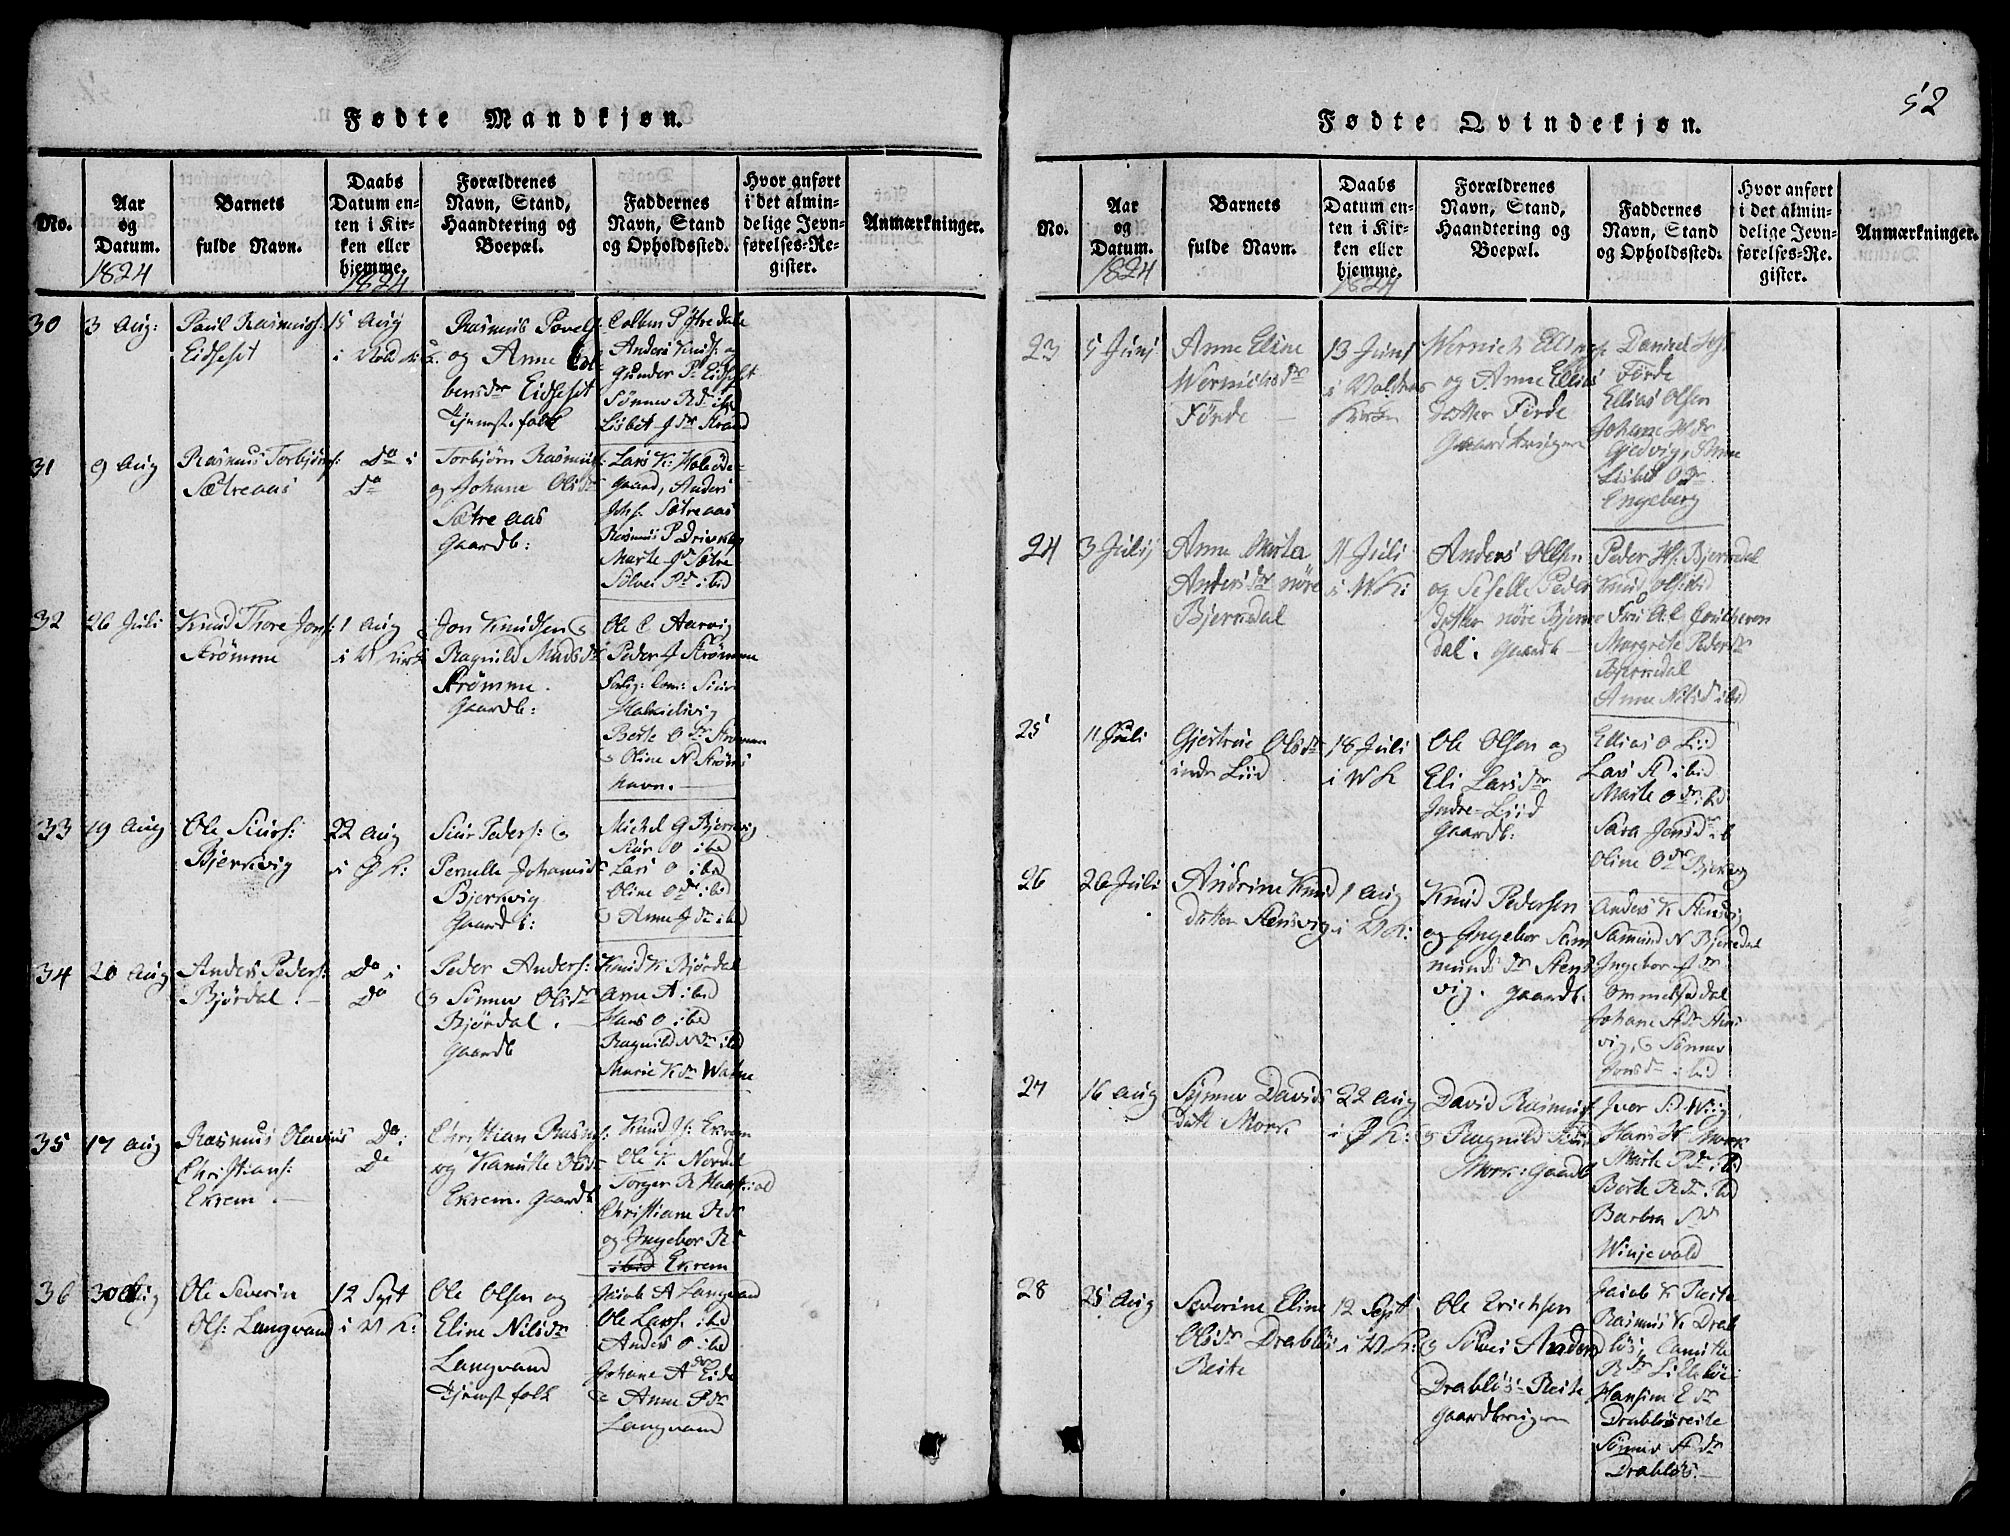 52
Fødte Mandkjøn.
No.
Aar og Datum.
1824
Barnets fulde Navn.
Daabs Datum enten i Kirken eller hjemme.
1824
Forældrenes Navn, Stand, Haandtering og Boepæl.
Faddernes Navn, Stand og Opholdssted.
Hvor anført i det almindelige Jevnførelses-Register.
Anmærkninger.
30
3 Aug:
Paul Rasmuss:
Eidseset
15 Aug
i Vold K:
Rasmus Povels:
og Anne Col-
bensdr Eidseset
Tjenist.folk
Colben P Ytredale
Anders Knuds: og
Gunder P. Eidseset
Sønnev R dr ibd
Lisbet J dr Strand
31
9 Aug
Rasmus Torbjørns:
Sætreaas
Do i
Do
Torbjørn Rasmuss:
og Johane Olsdr
Sætreaas
Gaardb:
Lars K:
gaard, Anders
Johs: Sætreaas
Rasmus P
Marte J dr Sætre
Sølvei P dr ibid
32
26 Juli
Knud Thore Jons:
Strømme
1 Aug
i V Kirk
Jon Knudsen &
Ragnild Madsdr
Strømme.
Gaardb:
Ole C Aarvig
Peder J Strømme
Halkielsvig
Berte O dr Strømme
& Oline N Strøms
havn.
33
19 Aug
Ole Siurs:
Bjerkvig
22 Aug
i Ø K:
Siur Peders: &
Pernelle Johansdr
Bjerkvig
Gaardb:
Michel G Bjerkvig
Siur O ibd
Lars O ibd
Oline O dr ibd
& Anne J dr ibd
34
20 Aug
Anders Peders:
Bjørdal.
Do i
Do
Peder Anders:
& Sønnev Olsdr
Bjørdal.
Gaardb
Knud K Bjørdal
Arne A ibd
Hans O ibd
Ragnild N dr ibd
Marie K dr Watne
35
17 Aug
Rasmus Olavius
Christians:
Ekrem.
Do i
Do
Christian Rasms:
og Kanutte Olsdr
Ekrem. Gaardb
Knud Js: Ekrem
Ole K Nordal
Torger R
Christiane R dr
og Ingebor R
ibid Ekrem
36
30 Aug
Ole Severin
Ols: Langvand
12 Sept
i V K:
Ole Olsen og
Eline Nilsdr
Langvand
Tjenist.folk
Jacob A Langvand
Ole Lars: ibd
Anders O ibd
Johane A dr Eide
& Anne P dr
Langvand
Fødte Qvindekjøn.
No.
Aar og Datum.
1824
Barnets fulde Navn.
Daabs Datum enten i Kirken eller hjemme.
1824
Forældrenes Navn, Stand, Haandtering og Boepæl.
Faddernes Navn, Stand og Opholdssted.
Hvor anført i det almindelige Jevnførelses-Register.
Anmærkninger.
23
5 Junj
Anne Eline
Wernicksdr
Førde
13 Junj
i Voldens
Kirke
Wernich Ellings:
og Anne Ellias
datter Førde
Gaardbruger
Daniel Js:
Førde
Ellias Olsen
Johane
Lisbet O dr
Engeberg
24
3 Julij
Anne Marta
Andersdr nøre
Bjerkdal
11 Juli
i W K:
Anders Olsen
og Seselle Peder
datter nøre Bjerke
dal. Gaardb
Peder Js: Bjerkdal
Knud Ols ibid
Margrete Pedersdr
Bjerkdal
Anne Nilsd ibd
25
11 Juli
Gjertrue Olsdr
indre Liid
18 Juli
i W K
Ole Olsen og
Eli Larsdr
Indre-Liid
Gaardb:
Ellias O Liid
Lars A ibid
Marte O dr ibd
Sara Jonsd ib
Oline O dr Bjerkvig
26
26 Juli
Andrine Knud
datter Stensvig
1 Aug
i V K:
Knud Pedersen
og Ingebor Sam
mundsdr Stens
vig. Gaardb.
Anders K Stensvig
Samund N Bjerkdal
Ingebor J dr
Ommelsedal
Johane A dr Stens
vig, & Sønnev
Jonsdr ibid
27
16 Aug
Synnev Davids
datt Mork
22 Aug
i Ø K:
David Rasmus:
& Ragnild
Mork. Gaardb
Iver S Wiig
Hans H Mork
Marte P dr ibd
Berte R dr ibd
Barbra S dr
Winjevold
28
25 Aug
Severine Eline
Olsdr Drabløs
Reite
12 Sept
i V K:
Ole Erichsen
& Silvei Anders
Drabløs-Reite
Gaardbrugere
Jacob K Reite
Rasmus K Drab
løs, Canutte
R dr Lillebøe
Hansine E dr
Drabløsreite
Sønnev A dr
Drabløs.